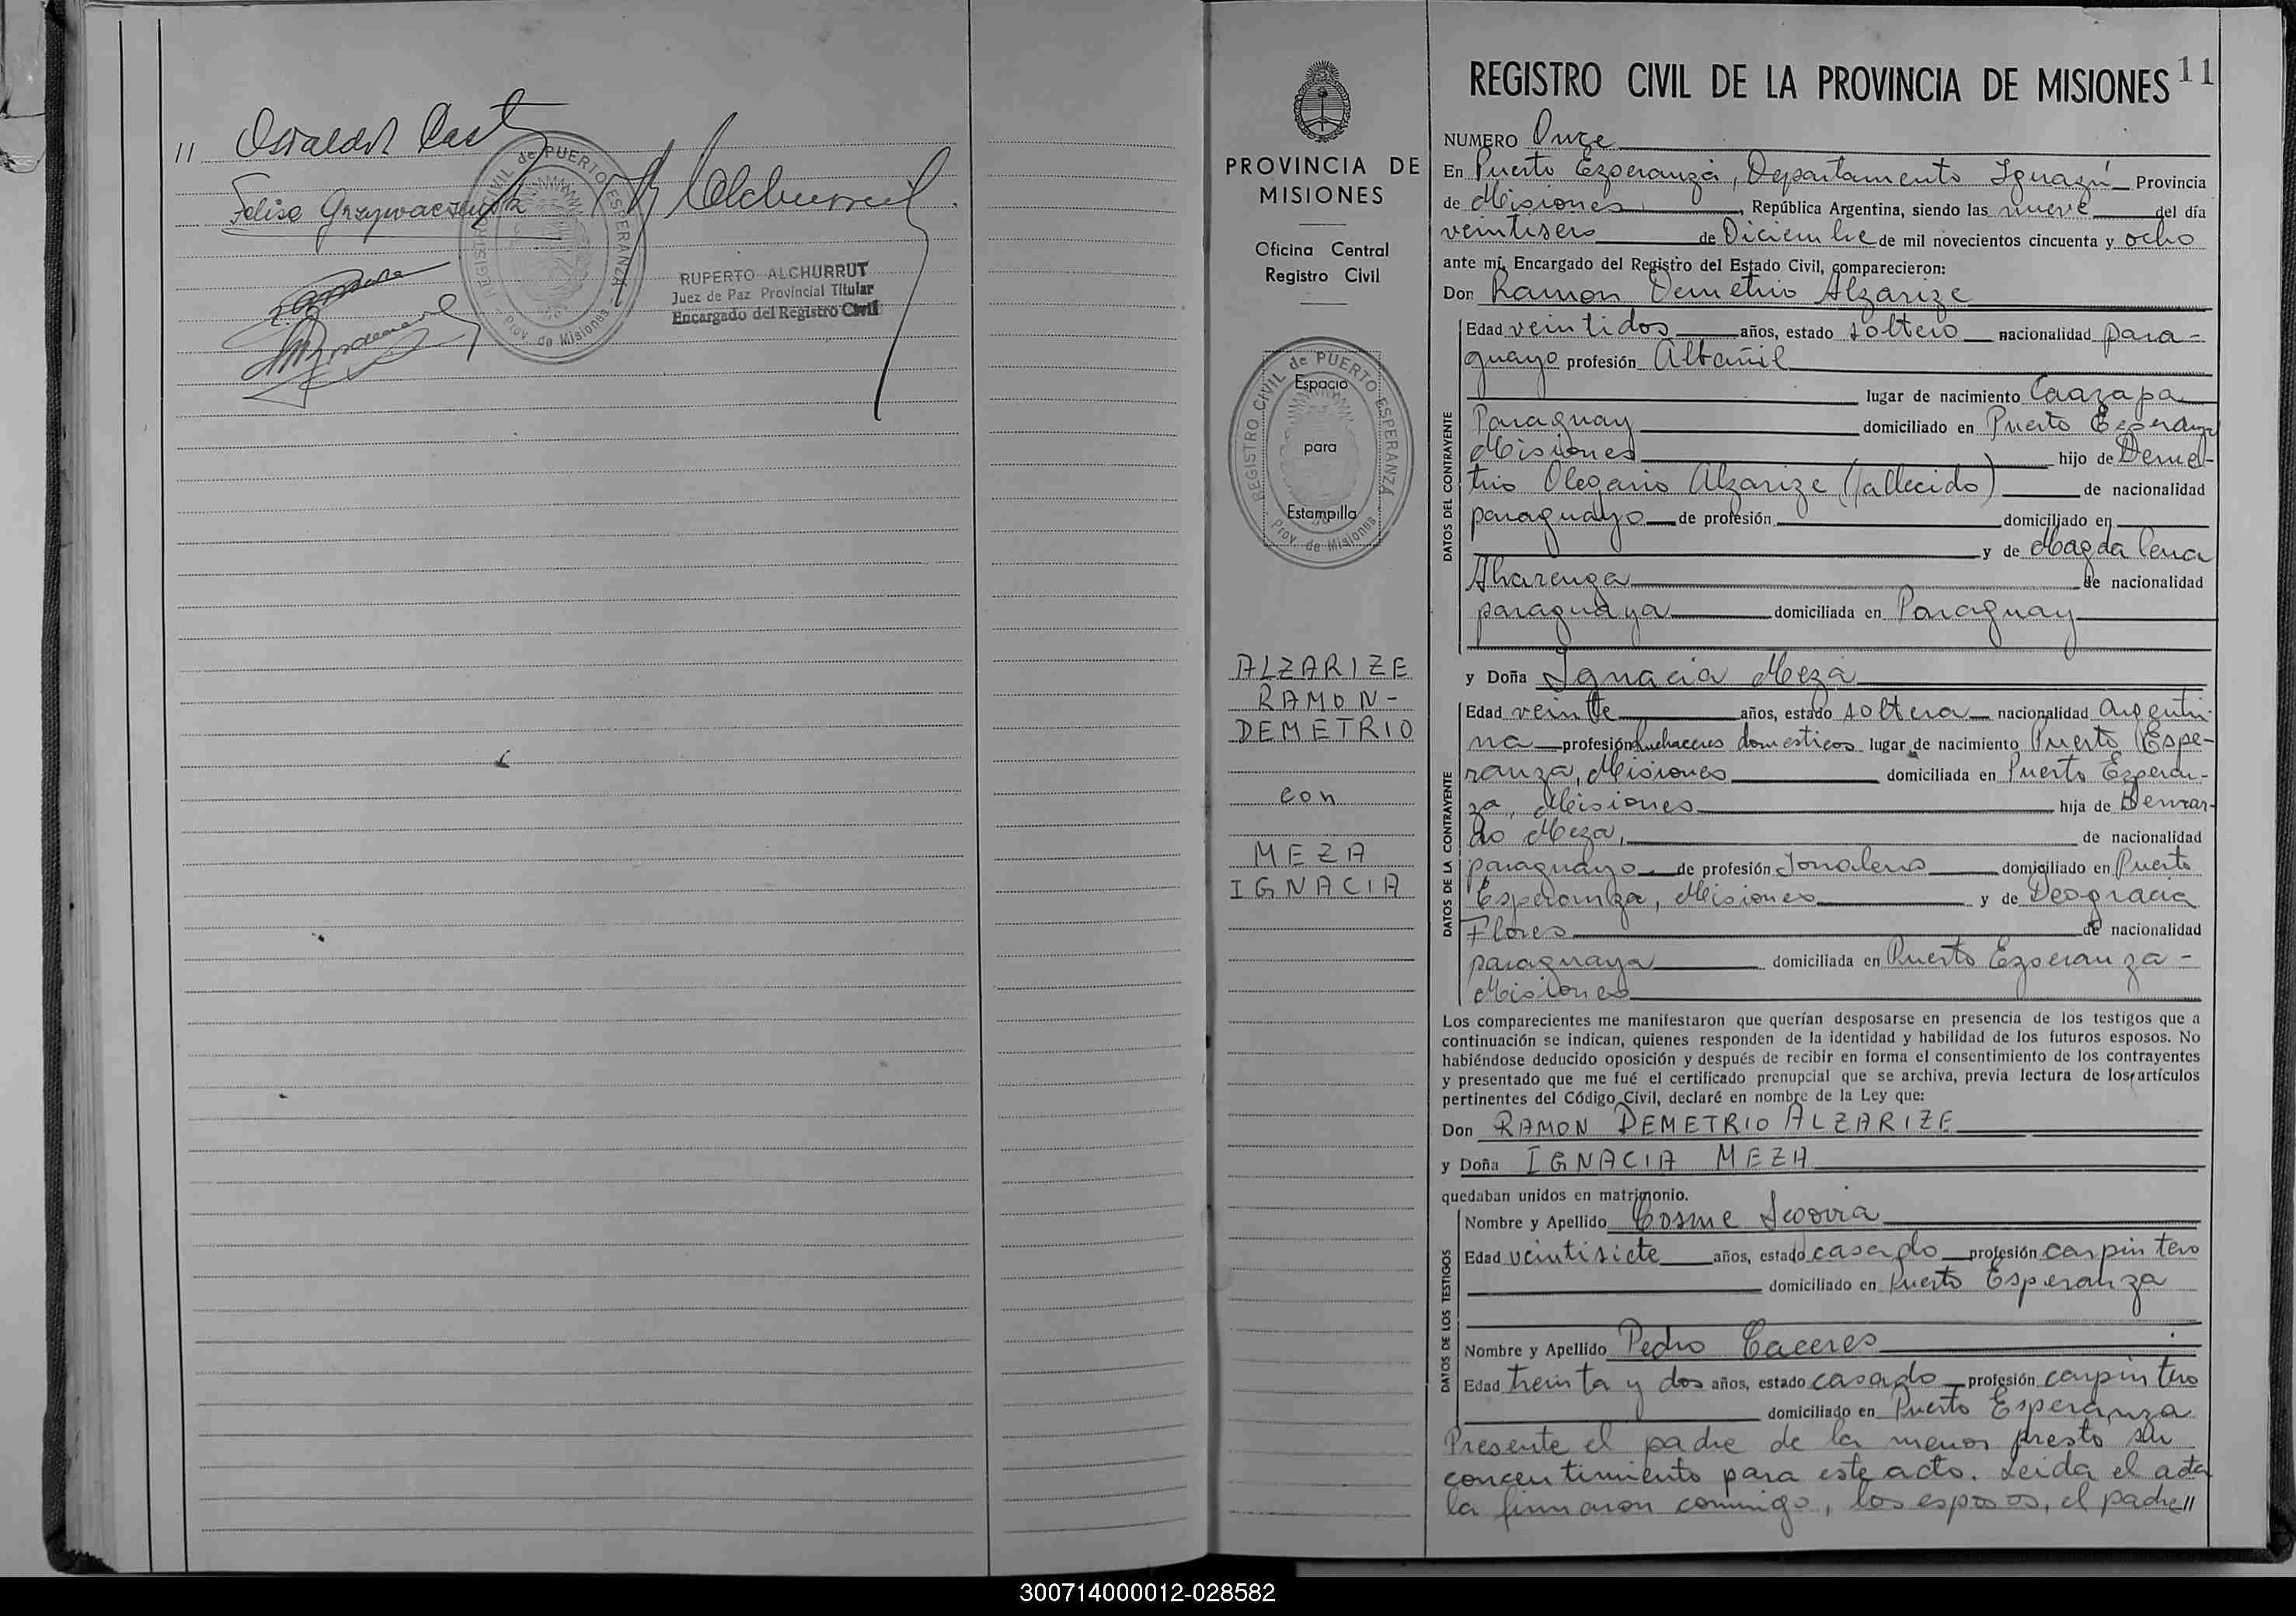 11
Felisa Grzywaczewska
REGISTRO CIVIL de PUERTO ESPERANZA
Prov. de Misiones
RUPERTO ALCHURRUT
Juez de Paz Provincial Titular
Encargado del Registro Civil
PROVINCIA DE
MISIONES
Oficina Central
Registro Civil
REGISTRO CIVIL de PUERTO ESPERANZA
Espacio
para
Estampilla
Prov. de Misiones
ALZARIZE
RAMON-
DEMETRIO
con
MEZA
IGNACIA
REGISTRO CIVIL DE LA PROVINCIA DE MISIONES 11
NUMERO Once
En Puerto Esperanza, Departamento Iguazú Provincia
de Misiones, República Argentina, siendo las nueve del día
veintiseis de Diciembre de mil novecientos cincuenta y ocho
ante mí, Encargado del Registro del Estado Civil, comparecieron:
Don Ramon Demetrio Alzarize
DATOS DEL CONTRAYENTE
Edad veintidos años, estado soltero nacionalidad para-
guayo profesión Albañil
lugar de nacimiento Caazapa
Paraguay domiciliado en Puerto Esperanza
Misiones hijo de Deme-
trio Olegario Alzarize (fallecido) de nacionalidad
paraguayo de profesión domiciliado en
y de Magdalena
Alvarenga de nacionalidad
paraguaya domiciliada en Paraguay
y Doña Ignacia Meza
DATOS DE LA CONTRAYENTE
Edad veinte años, estado soltera nacionalidad argenti-
na profesión quehaceres domesticos lugar de nacimiento Puerto Espe-
ranza, Misiones domiciliada en Puerto Esperan-
za, Misiones hija de
do Meza, de nacionalidad
paraguayo de profesión Jornalero domiciliado en Puerto
Esperanza, Misiones y de Deogracia
Flores de nacionalidad
paraguaya domiciliada en Puerto Esperanza-
Misiones
Los comparecientes me manifestaron que querían desposarse en presencia de los testigos que a
continuación se indican, quienes responden de la identidad y habilidad de los futuros esposos. No
habiéndose deducido oposición y después de recibir en forma el consentimiento de los contrayentes
y presentado que me fué el certificado prenupcial que se archiva, previa lectura de los artículos
pertinentes del Código Civil, declaré en nombre de la Ley que:
Don RAMON DEMETRIO ALZARIZE
y Doña IGNACIA MEZA
quedaban unidos en matrimonio.
DATOS DE LOS TESTIGOS
Nombre y Apellido Cosme Segovia
Edad veintisiete años, estado casado profesión carpintero
domiciliado en Puerto Esperanza
Nombre y Apellido Pedro Caceres
Edad treinta y dos años, estado casado profesión carpintero
domiciliado en Puerto Esperanza
Presente el padre de la menor presto su
concentimiento para este acto. Leida el acta
la firmaron conmigo, los esposos, el padre//
300714000012-028582